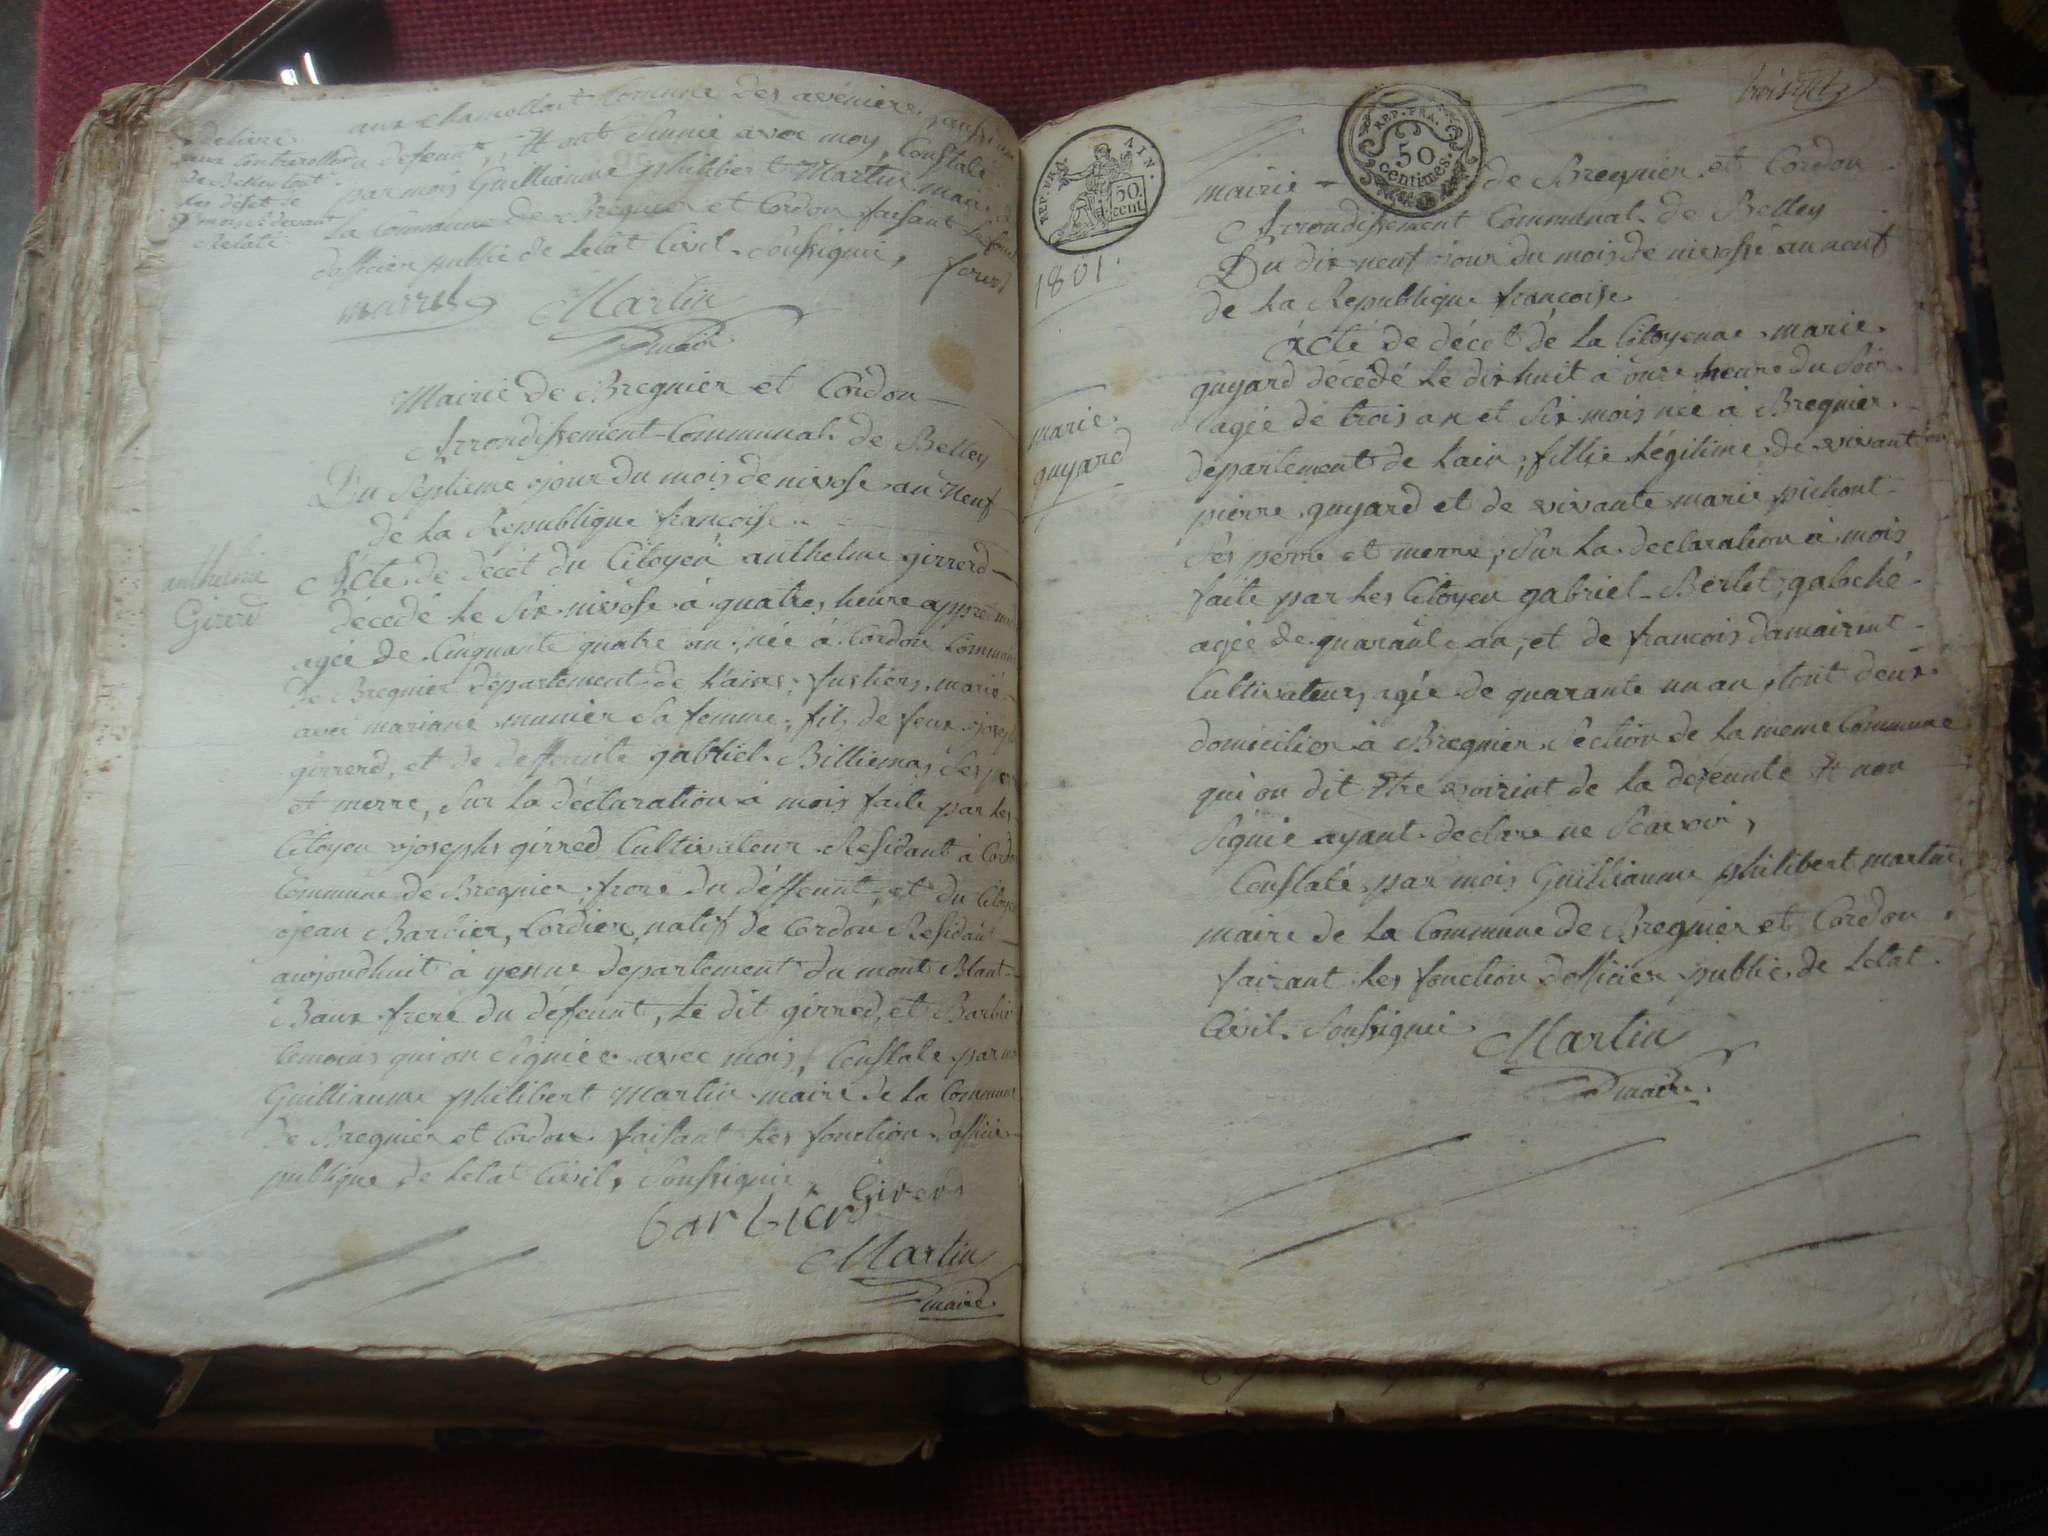 aux chamollait Commune des avenieres
du defeunt, Et ont Sinnié avec moy, Constaté
par mois Guilliaume philibert Martin maire
La Commune de Bregnier et Cordon faisant
dofficier public de Letat Civil Soussignié,
delivré
aux Controlleur
de Belley tout
marrel Martin
maire
Mairie de Bregnier et Cordon
Arrondissement Communal de Belley
Du Septieme jour du mois de nivose an Neuf
de la Republique francoise
anthelme
Girerd
Acte de décét du Citoyen anthelme girrerd
décédé le Six nivose à quatres heure appre
agée de Cinquante quatre an, née à Cordon Commune
de Bregnier département de Lain, marié
avec mariane munier Sa femme, fils de feux
girrerd, et de deffeunte gabriel Billiemas Ses
et merre, Sur la déclaration à mois faite par les
Citoyen josephs girred Cultivateur Residant à
Commune de Bregnier, frere du déffeunt, et du
jean Barbier, Cordier natif de Cordon Residant
aurjourdhuit à yenne departement du mont Blant
Baux frere du défeunt, Le dit girred, et Barbier
temoins qui on Signiée avec mois, Constate par
Guilliaume philibert Martin maire de la Commune
de Bregnier et Cordon faisant Les fonction
publique de Letat Civil, Soussignie
Girerd
barbier
Martin
maire
REP. FRA. AIN.
50.
cent.
REP. FRA.
50
centimes.
1801.
mairie de Bregnier et Cordon
Arrondissement Communal de Belley
Du dix neuf jour du mois de nivosse an neuf
de la Republique francoise
marie
guyard
Acte de décét de la Citoyenne marie
guyard décédé Le dixhuit à onze heure du Soir
agée de trois an et Six mois née à Bregnier
departement de Lain, fillie Légitime de vivant
pierre guyard et de vivante marie pichont
Ses perre et merre, Sur La declaration à mois
faite par Les Citoyen gabriel Berlet, galoché
agée de quarante an, et de francois damairent
Cultivateur, agée de quarante un an, tout deux
domicilier à Bregnier Séction de La meme Commune
qui on dit Etre voirint de La defeunte Et non
Signié ayant declare ne Scavoir,
Constaté par mois Guilliaume philibert martin
maire de La Commune de Bregnier et Cordon,
faisant Les fonction dofficier public de Letat
Civil Soussignié
Martin
maire.